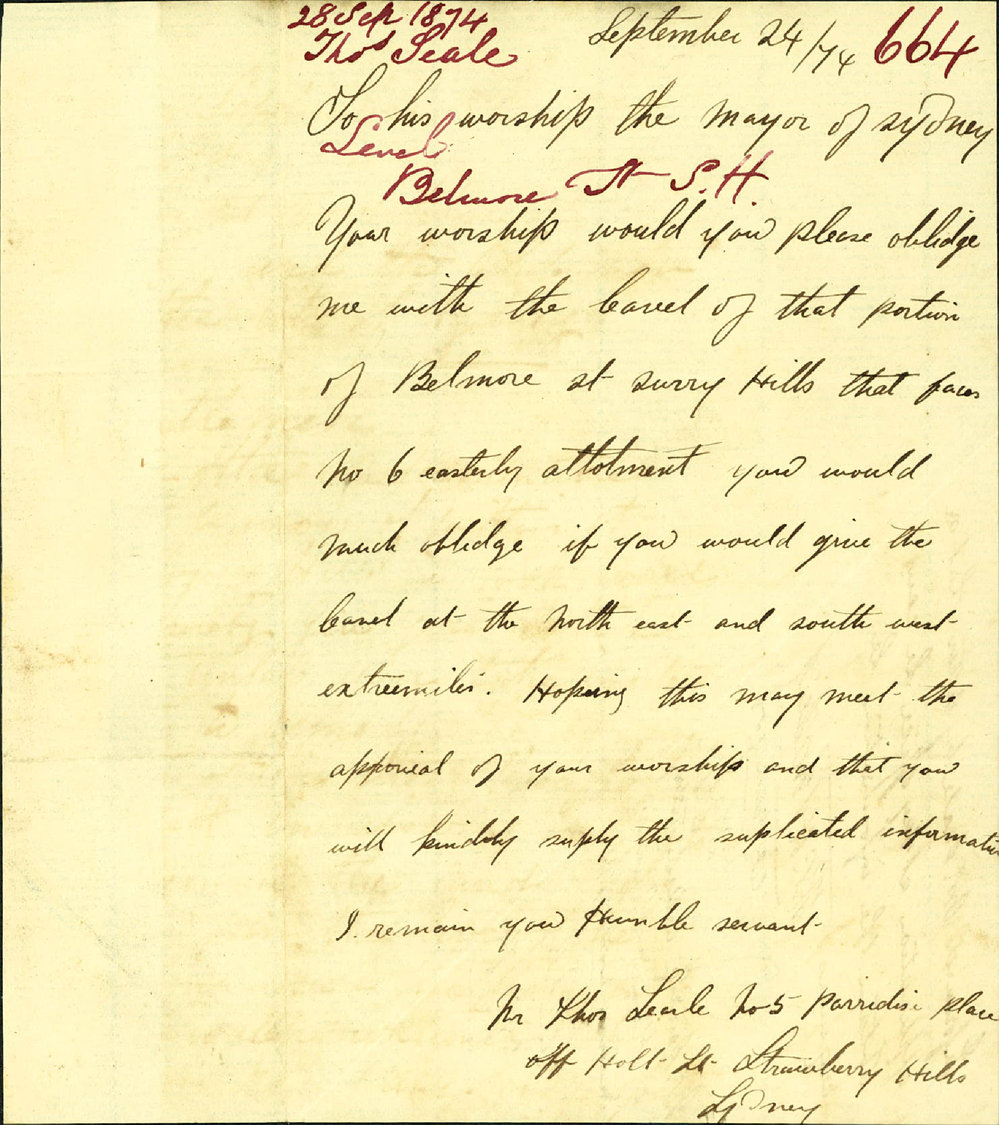 28 Sep 1874
Thos Seale
September 24/74
664
To his worship the mayor of sydney
Level
Belmore St S.H.
Your worship would you please oblidge
me with the leavel of that portion
of Belmore st surry Hills that faces
No 6 easterly attotment you would
much oblidge if you would give the
leavel at the North east and south west
extreemities. Hopeing this may meet the
approval of your worship and that you
will kindly suply the suplicated information
I remain you Humble servant
Mr Thos Seale No 5 Parridise place
off Holt St Strawberry Hills
Sydney